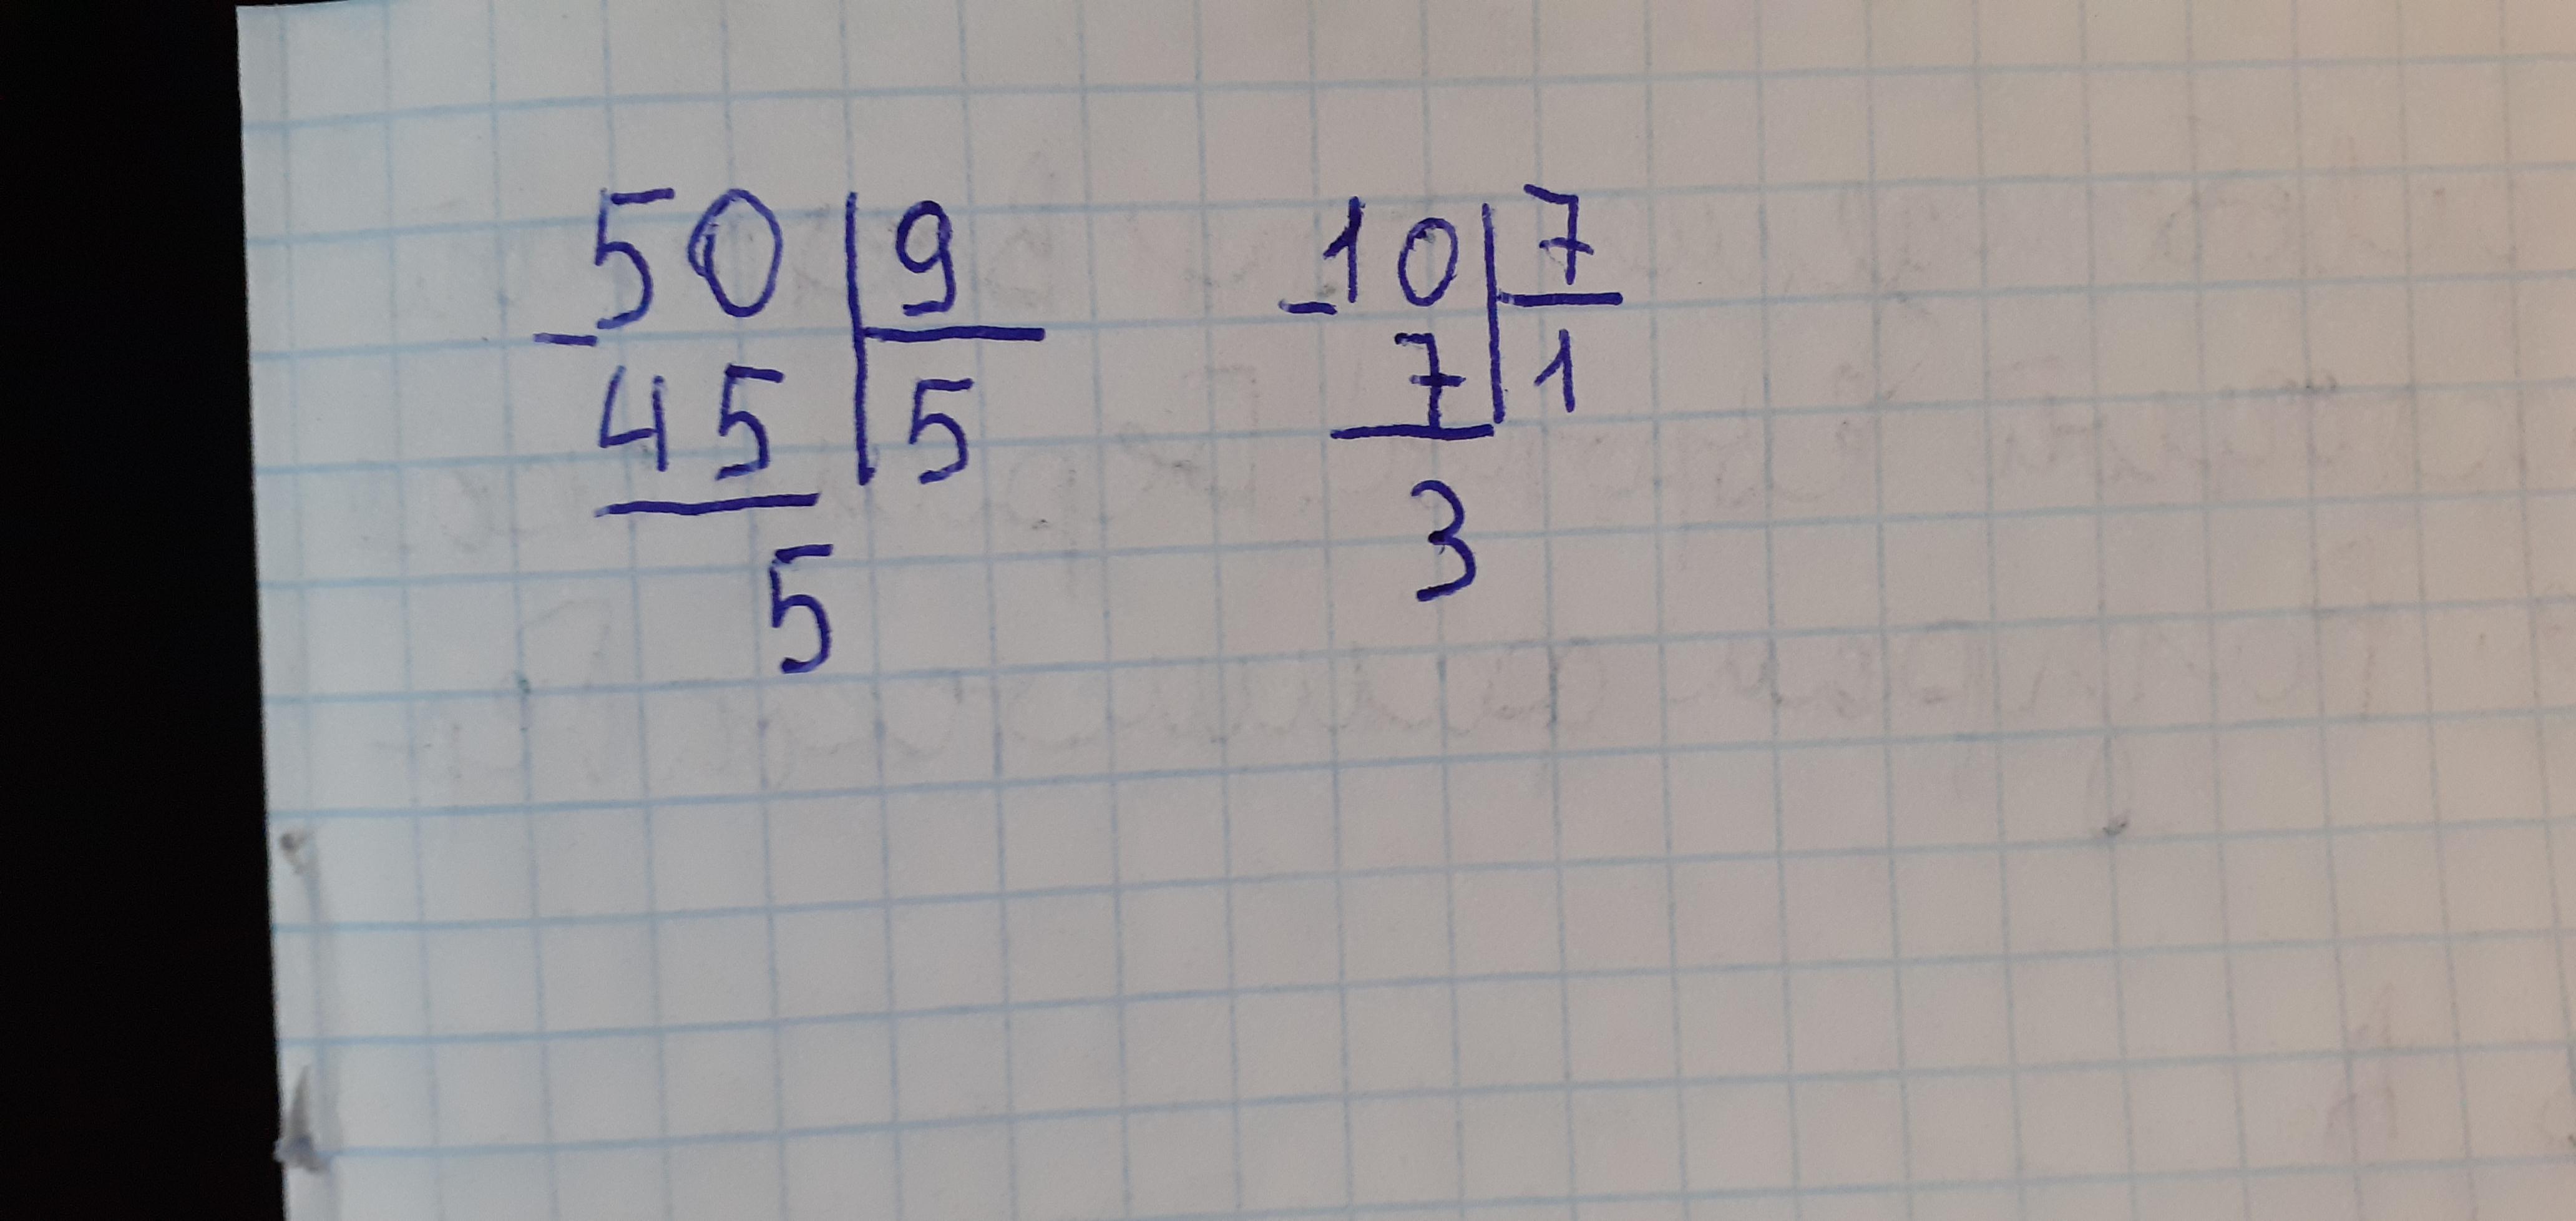 50 | 9
- 45 | 5
5
- 10 | 7
7 | 1
3